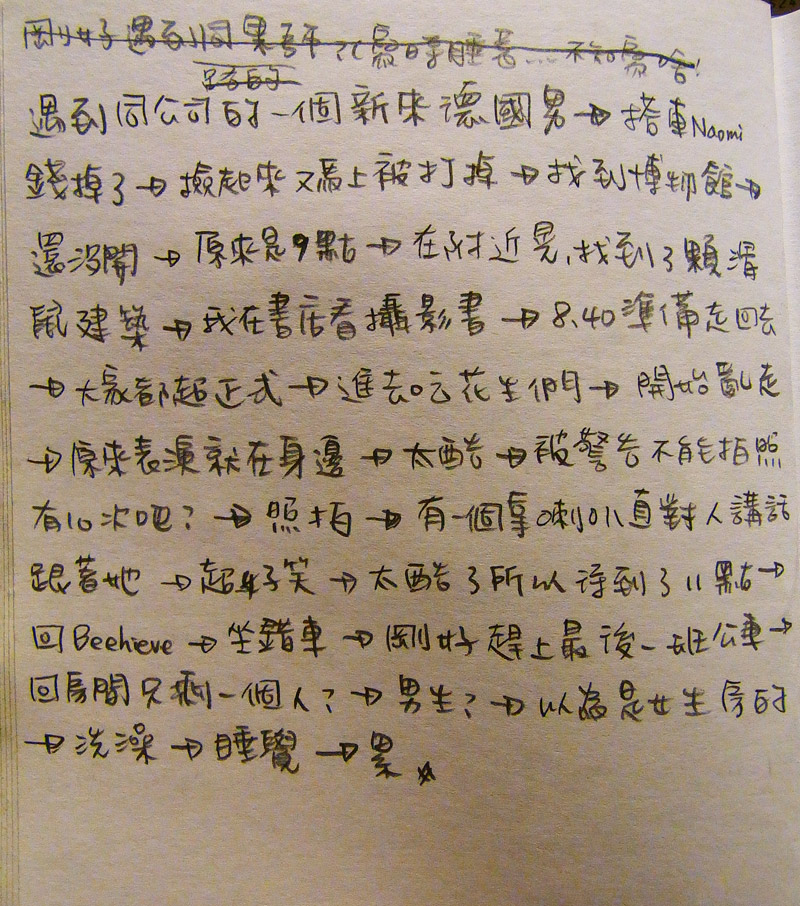 剛好遇到同
路的
遇到同公司的一個新來德國男→搭車Naomi
錢掉了→撿起來又馬上被打掉→找到博物館→
還沒開→原來是9點→在附近晃,找到了顆滑
鼠建築→我在書店看攝影書→8.40準備走回去
→大家都超正式→進去吃花生們→開始亂走
→原來表演就在身邊→太酷→被警告不能拍照
有10次吧?→照拍→有一個拿喇叭直對人講話
跟著她→超好笑→太酷了所以待到了11點→
回Beehieve→坐錯車→剛好趕上最後一班公車→
回房間只剩一個人?→男生?→以為是女生房的
→洗澡→睡覺→累